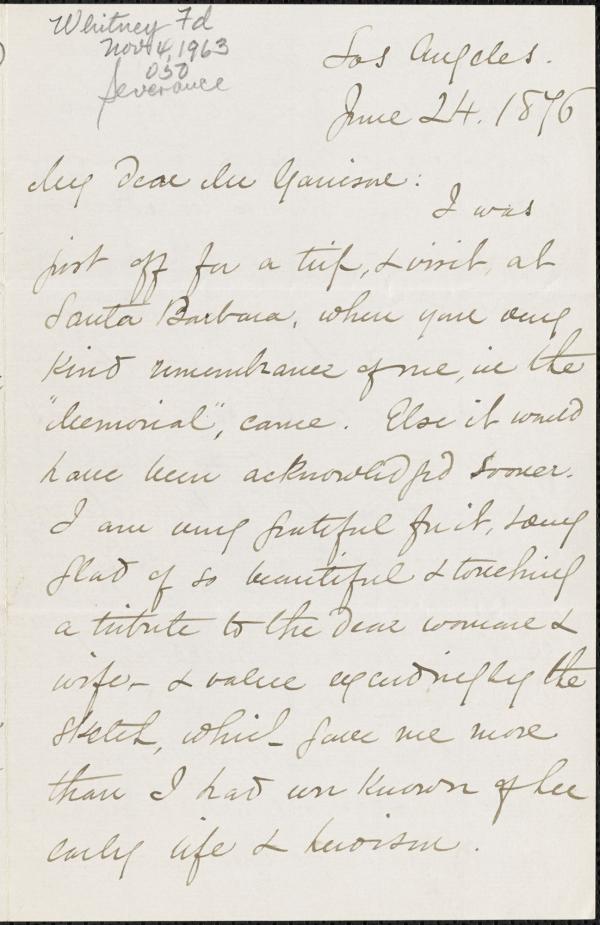 Whitney Fd
Nov 4, 1963
050
Severance
Los Angeles.
June 24. 1876
My dear Mr Garrison:
I was
just off for a trip, & visit, at
Santa Barbara, when your very
kind remembrance of me, in the
"Memorial", came. Else it would
have been acknowledged sooner.
I am very grateful for it, & very
glad of so beautiful & touching
a tribute to the dear woman &
wife - & value exceedingly the
sketch, which gave me more
than I had ever known of her
early life & heroism.